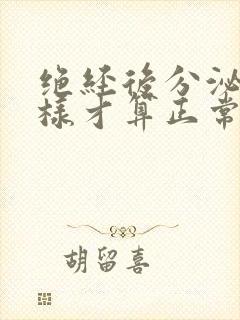 绝经后分泌
样才算正常
胡留喜